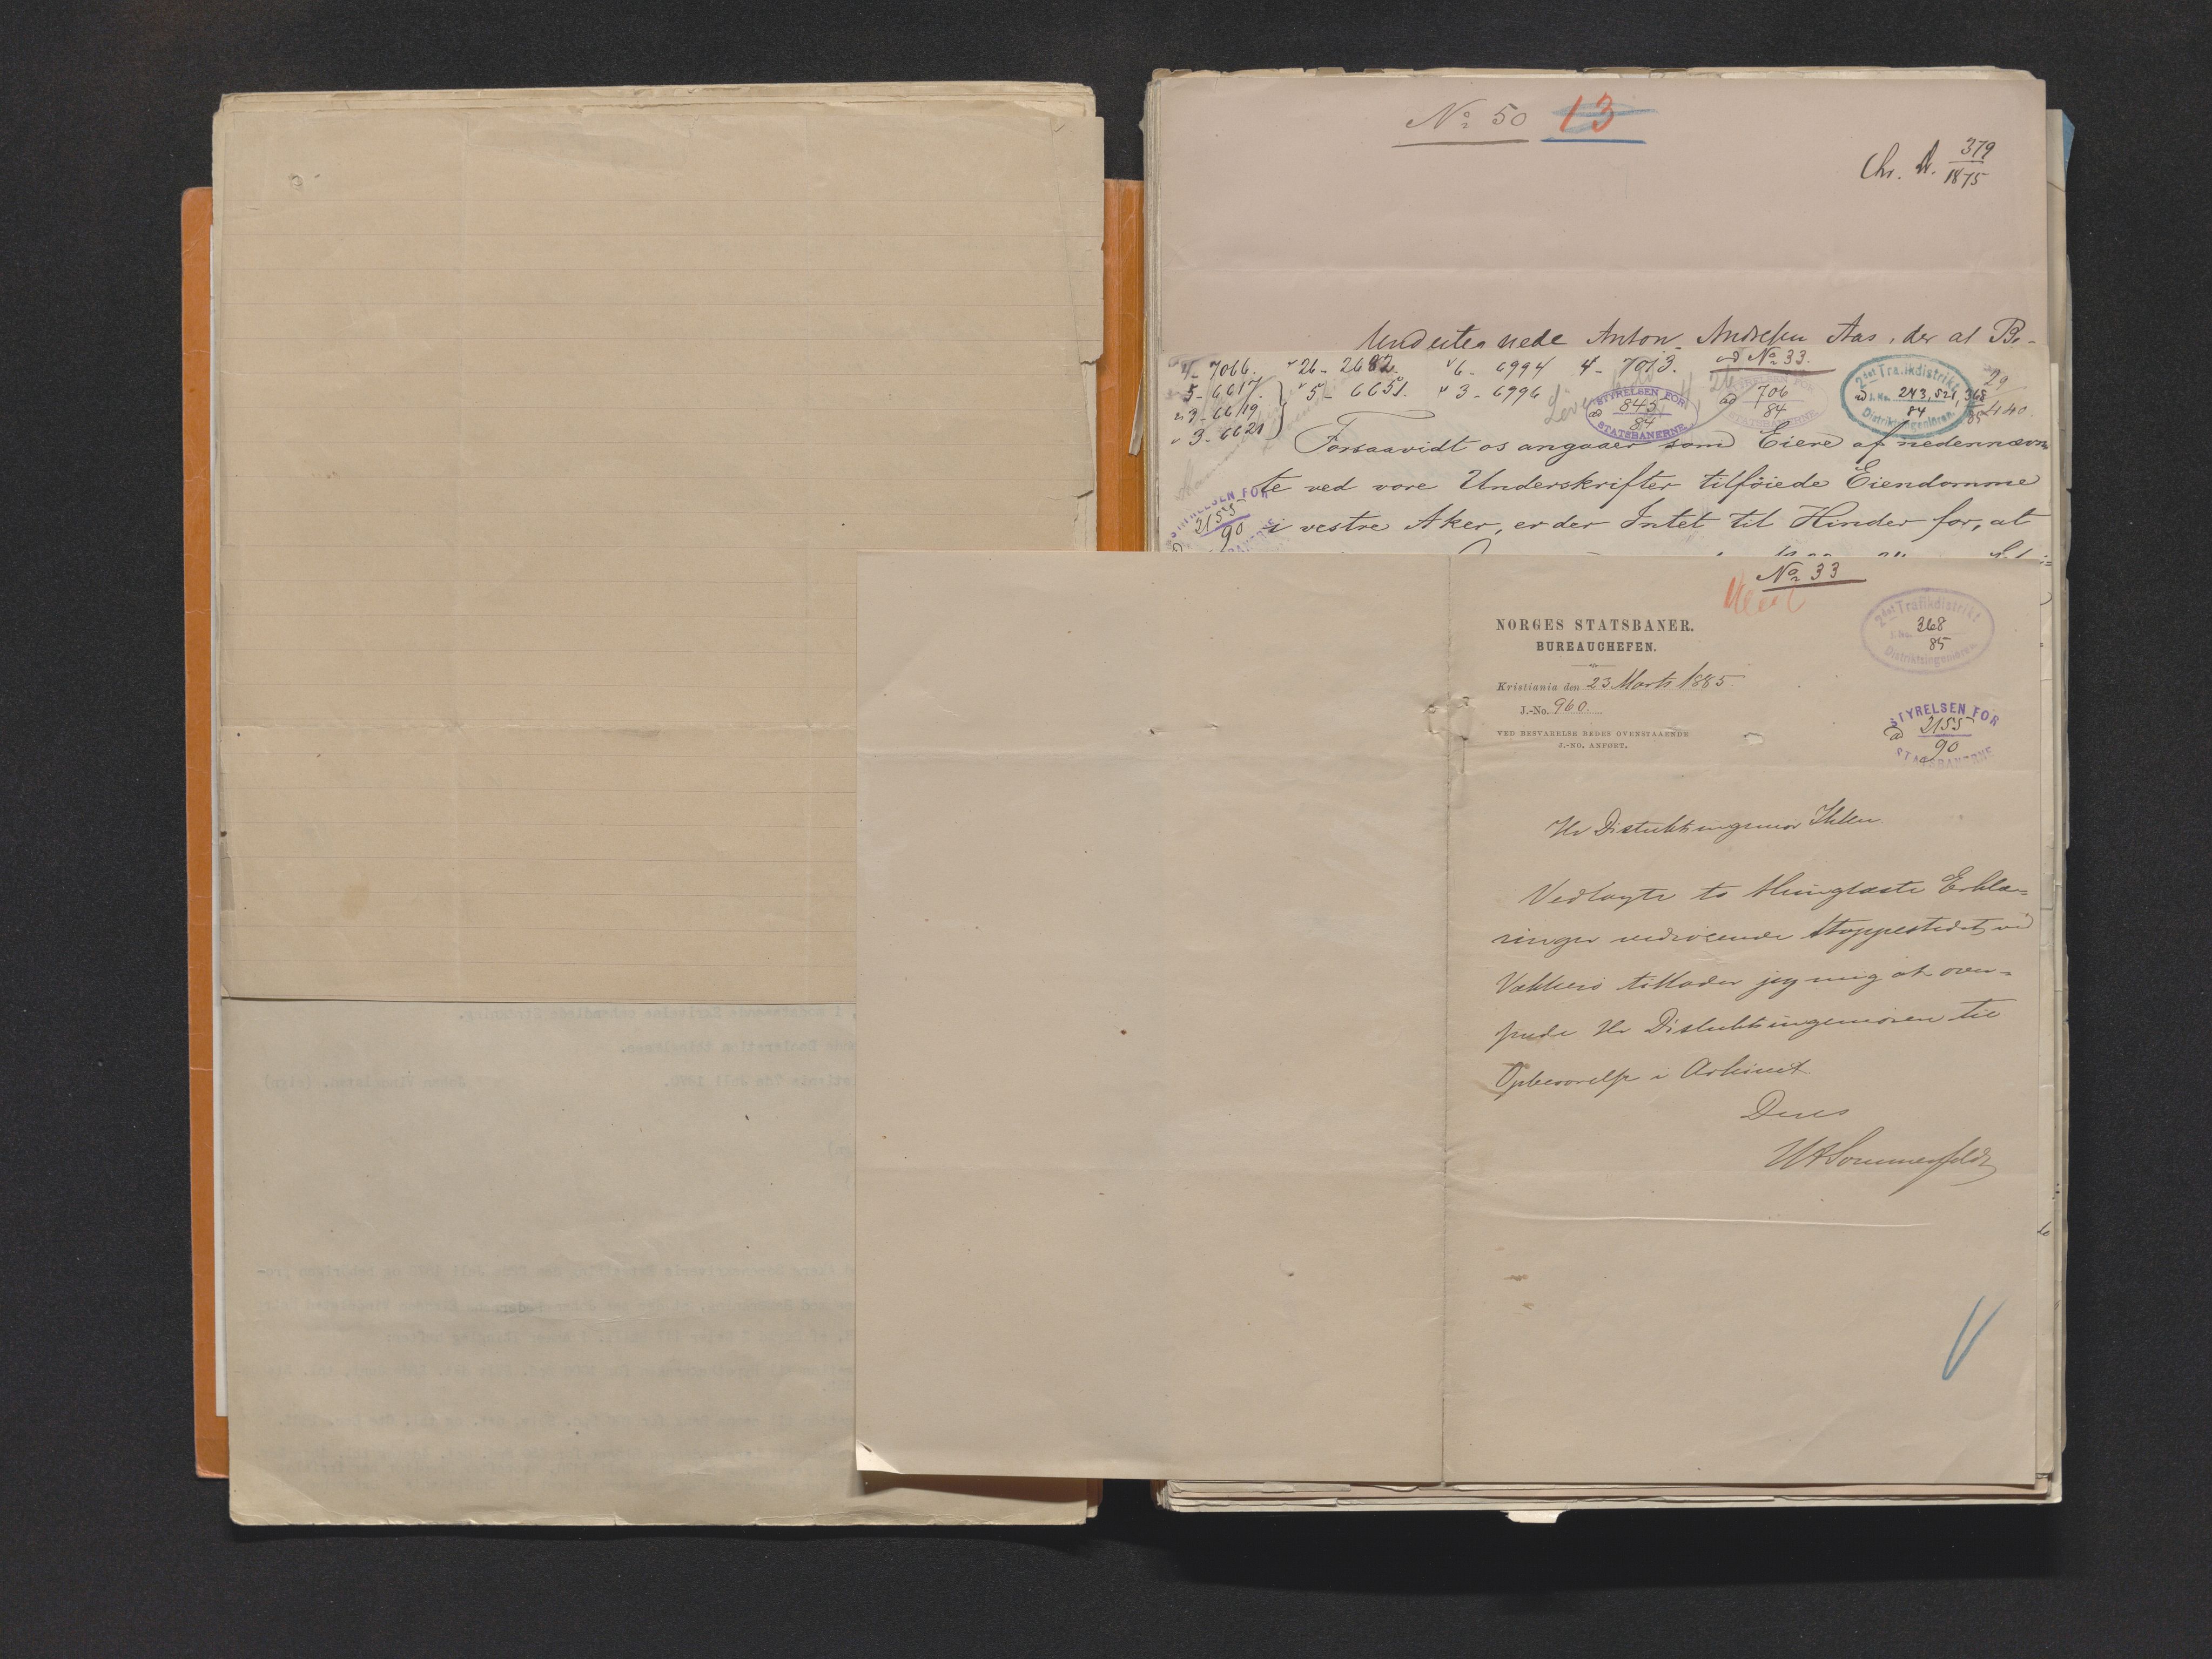 No 50 13
Chr. D. 379
1875
Undertegnede Anton Andresen Aas, der at Be-
4 - 7066. 26 - 2682. 6 - 6994 4 - 7013. ad No 33.
5 - 6617. 5 - 6651. 3 - 6996
3 - 6619
3 - 6621
STYRELSEN FOR
ad 845
84
STATSBANERNE
STYRELSEN FOR
ad 706
84
STATSBANERNE
2det Trafikdistrikt
ad J. No. 243, 521, 368
84 85
Distriktsingeniøren
29
440
Forsaavidt os angaaer som Eiere af nedennævn-
te ved vore Underskrifter tilføiede Eiendomme
i vestre Aker, er der Intet til Hinder for, at
STYRELSEN FOR
ad 2155
90
STATSBANERNE
No 33
NORGES STATSBANER.
BUREAUCHEFEN.
Kristiania den 23 Marts 1885
J.-No. 960.
VED BESVARELSE BEDES OVENSTAAENDE
J.-NO. ANFØRT.
2det Trafikdistrikt
J. No. 368
85
Distriktsingeniøren
STYRELSEN FOR
ad 2155
90
STATSBANERNE
Hr Distriktsingeniør Ihlen.
Vedlagte to thinglæste Erklæ-
ringer vedrørende Stoppestedet ved
Vækkerø tillader jeg mig at over-
sende Hr Distriktsingeniøren til
Opbevarelse i Arkivet.
Deres
WASommerfeldt